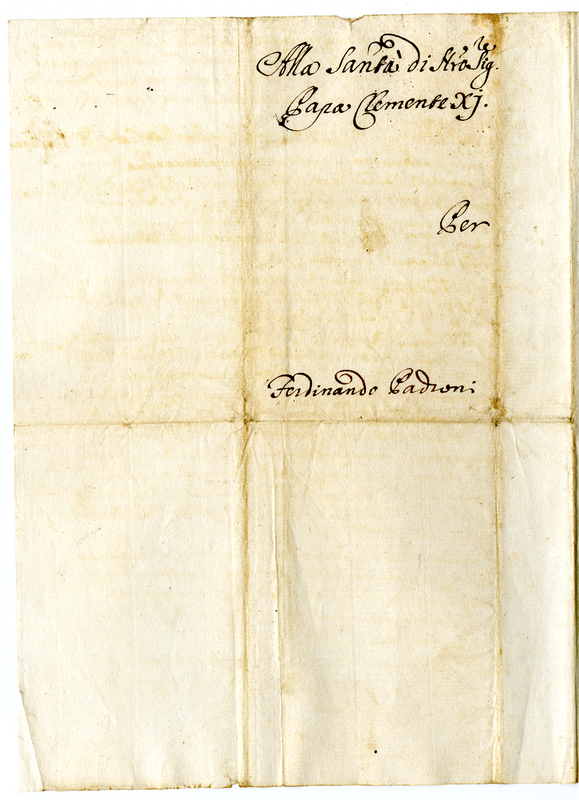 Alla Santà di Nrõ Sig.re
Papa Clemente XJ.
Per
Ferdinando Padroni